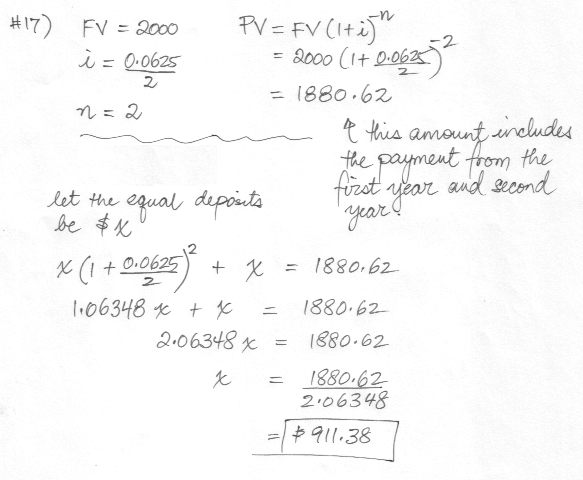 #17) FV = 2000 PV = FV(1+i)^-n
i = 0.0625/2 = 2000 (1 + 0.0625/2)^-2
n = 2 = 1880.62
↑ this amount includes
the payment from the
first year and second
year.
let the equal deposits
be $x
x(1 + 0.0625/2)^2 + x = 1880.62
1.06348 x + x = 1880.62
2.06348 x = 1880.62
x = 1880.62/2.06348
= $911.38